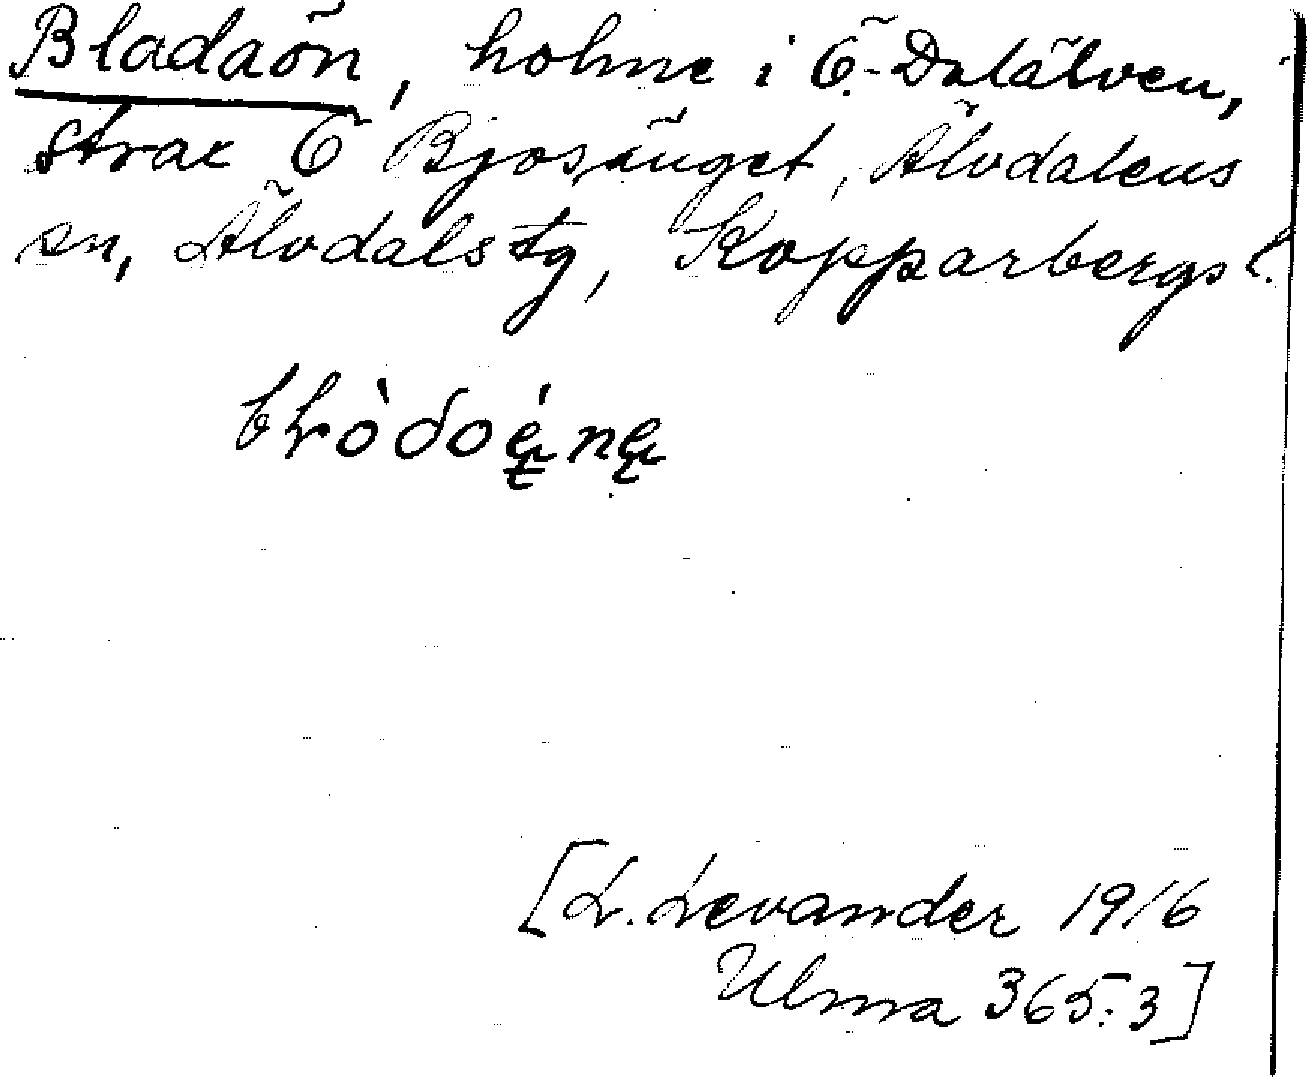 Bladaön, holme i Ö. Dalälven,
strax Ö Bjosänget, Älvdalens
sn, Älvdals tg, Kopparbergs l.
[L. Levander 1916
Ulma 365:3]